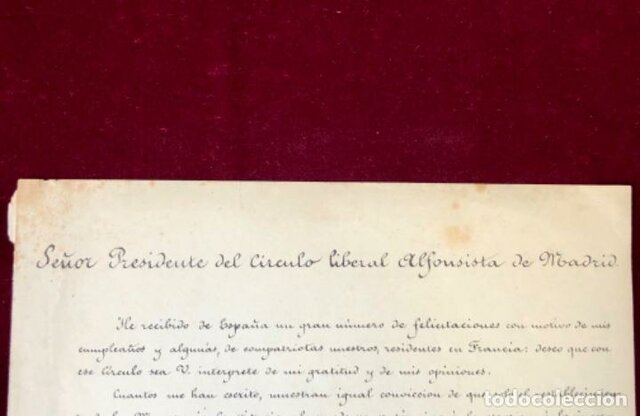 Señor Presidente del Círculo liberal Alfonsista de Madrid.
He recibido de España un gran número de felicitaciones con motivo de mis
cumpleaños y algunas, de compatriotas nuestros, residentes en Francia: deseo que con
ese Círculo sea V. intérprete de mi gratitud y de mis opiniones.
Cuantos me han escrito, muestran igual conviccion de que solo el establecimien
todocoleccion